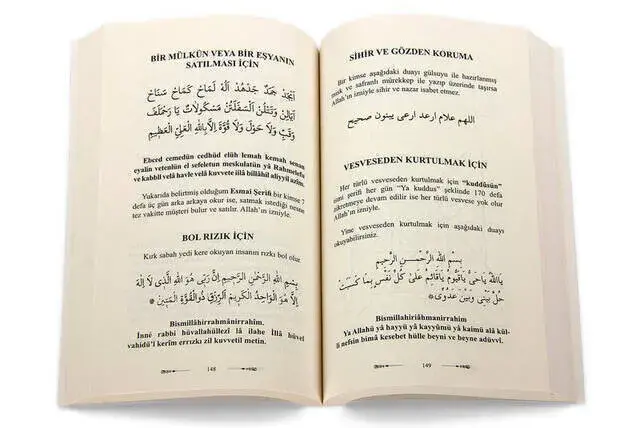 BİR MÜLKÜN VEYA BİR EŞYANIN
SATILMASI İÇİN
وَقَبِّ وَلَا حَوْلَ وَلَا قُوَّةَ اِلَّا بِاللّٰهِ الْعَلِيِّ الْعَظِيمِ
Ebced cemedün cedhüd elüh lemah kemah senah
eyalin vetenlün el sefeletun meskulatün yâ Rahmelefu
ve kabbil velâ havle velâ kuvvete illâ billâhil aliyyil azîm.
Yukarıda belirtmiş olduğum Esmai Şerifi bir kimse 7
defa üç gün arka arkaya okur ise, satmak istediği nesne
tez vakitte müşteri bulur ve satılır. Allah'ın izniyle.
BOL RIZIK İÇİN
Kırk sabah yedi kere okuyan insanın rızkı bol olur.
بِسْمِ اللّٰهِ الرَّحْمٰنِ الرَّحِيمِ اِنَّ رَبِّى هُوَ اللّٰهُ الَّذِى لَا اِلٰهَ
اِلَّا هُوَ الْوَاحِدُ الْكَرِيمُ الرِّزْقِ ذُو الْقُوَّةِ الْمَتِينُ
Bismillâhirrahmânirrahîm.
İnné rabbi hüvallahüllezî lâ ilahe İllâ hüvel
vahidü'l kerîm errızkı zil kuvvetil metin.
148
SİHİR VE GÖZDEN KORUMA
Bir kimse aşağıdaki duayı gülsuyu ile hazırlanmış
misk ve safranlı mürekkep ile yazıp üzerinde taşırsa
Allah'ın izniyle sihir ve nazar isabet etmez.
اللهم علام ارعد ارعى يبنون صحيح
VESVESEDEN KURTULMAK İÇİN
Her türlü vesveseden kurtulmak için "kuddûsün"
ismi şerifi her gün "Ya kuddus" şeklinde 170 defa
zikretmeye devam edilir ise her türlü vesvese yok olur
Allah'ın izniyle.
Yine vesveseden kurtulmak için aşağıdaki duayı
okuyabilirsiniz.
بِسْمِ اللّٰهِ الرَّحْمٰنِ الرَّحِيمِ
يَا اَللّٰهُ يَا حَيُّ يَا قَيُّومُ يَا قَائِمُ عَلٰى كُلِّ نَفْسٍ بِمَا كَسَبَتْ
حُلْ بَيْنِى وَبَيْنَ عَدُوِّى
Bismillahiriâhmanirrahim
Ya Allahü yâ hayyü yâ kayyûmü yâ kaimü alâ kül-
li nefsin bimâ kesebet hülle beyni ve beyne adüvvî.
149